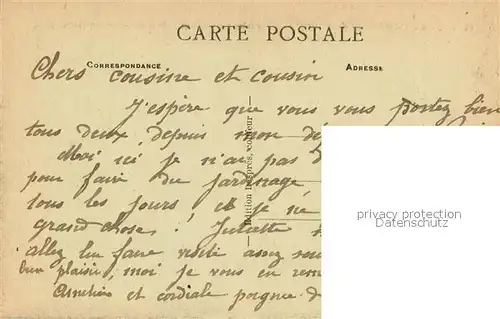 CARTE POSTALE
CORRESPONDANCE
ADRESSE
Chers cousine et cousin
J'espère que vous vous portez bien
tous deux depuis mon dé
Moi ici je n'ai pas d
pour faire du jardinage
tous les jours et je ne
grand chose! Juliette
allez lui faire visite assez sou
bien plaisir, moi je vous en rem
Amitiés et cordiale poignée d
privacy protection
Datenschutz